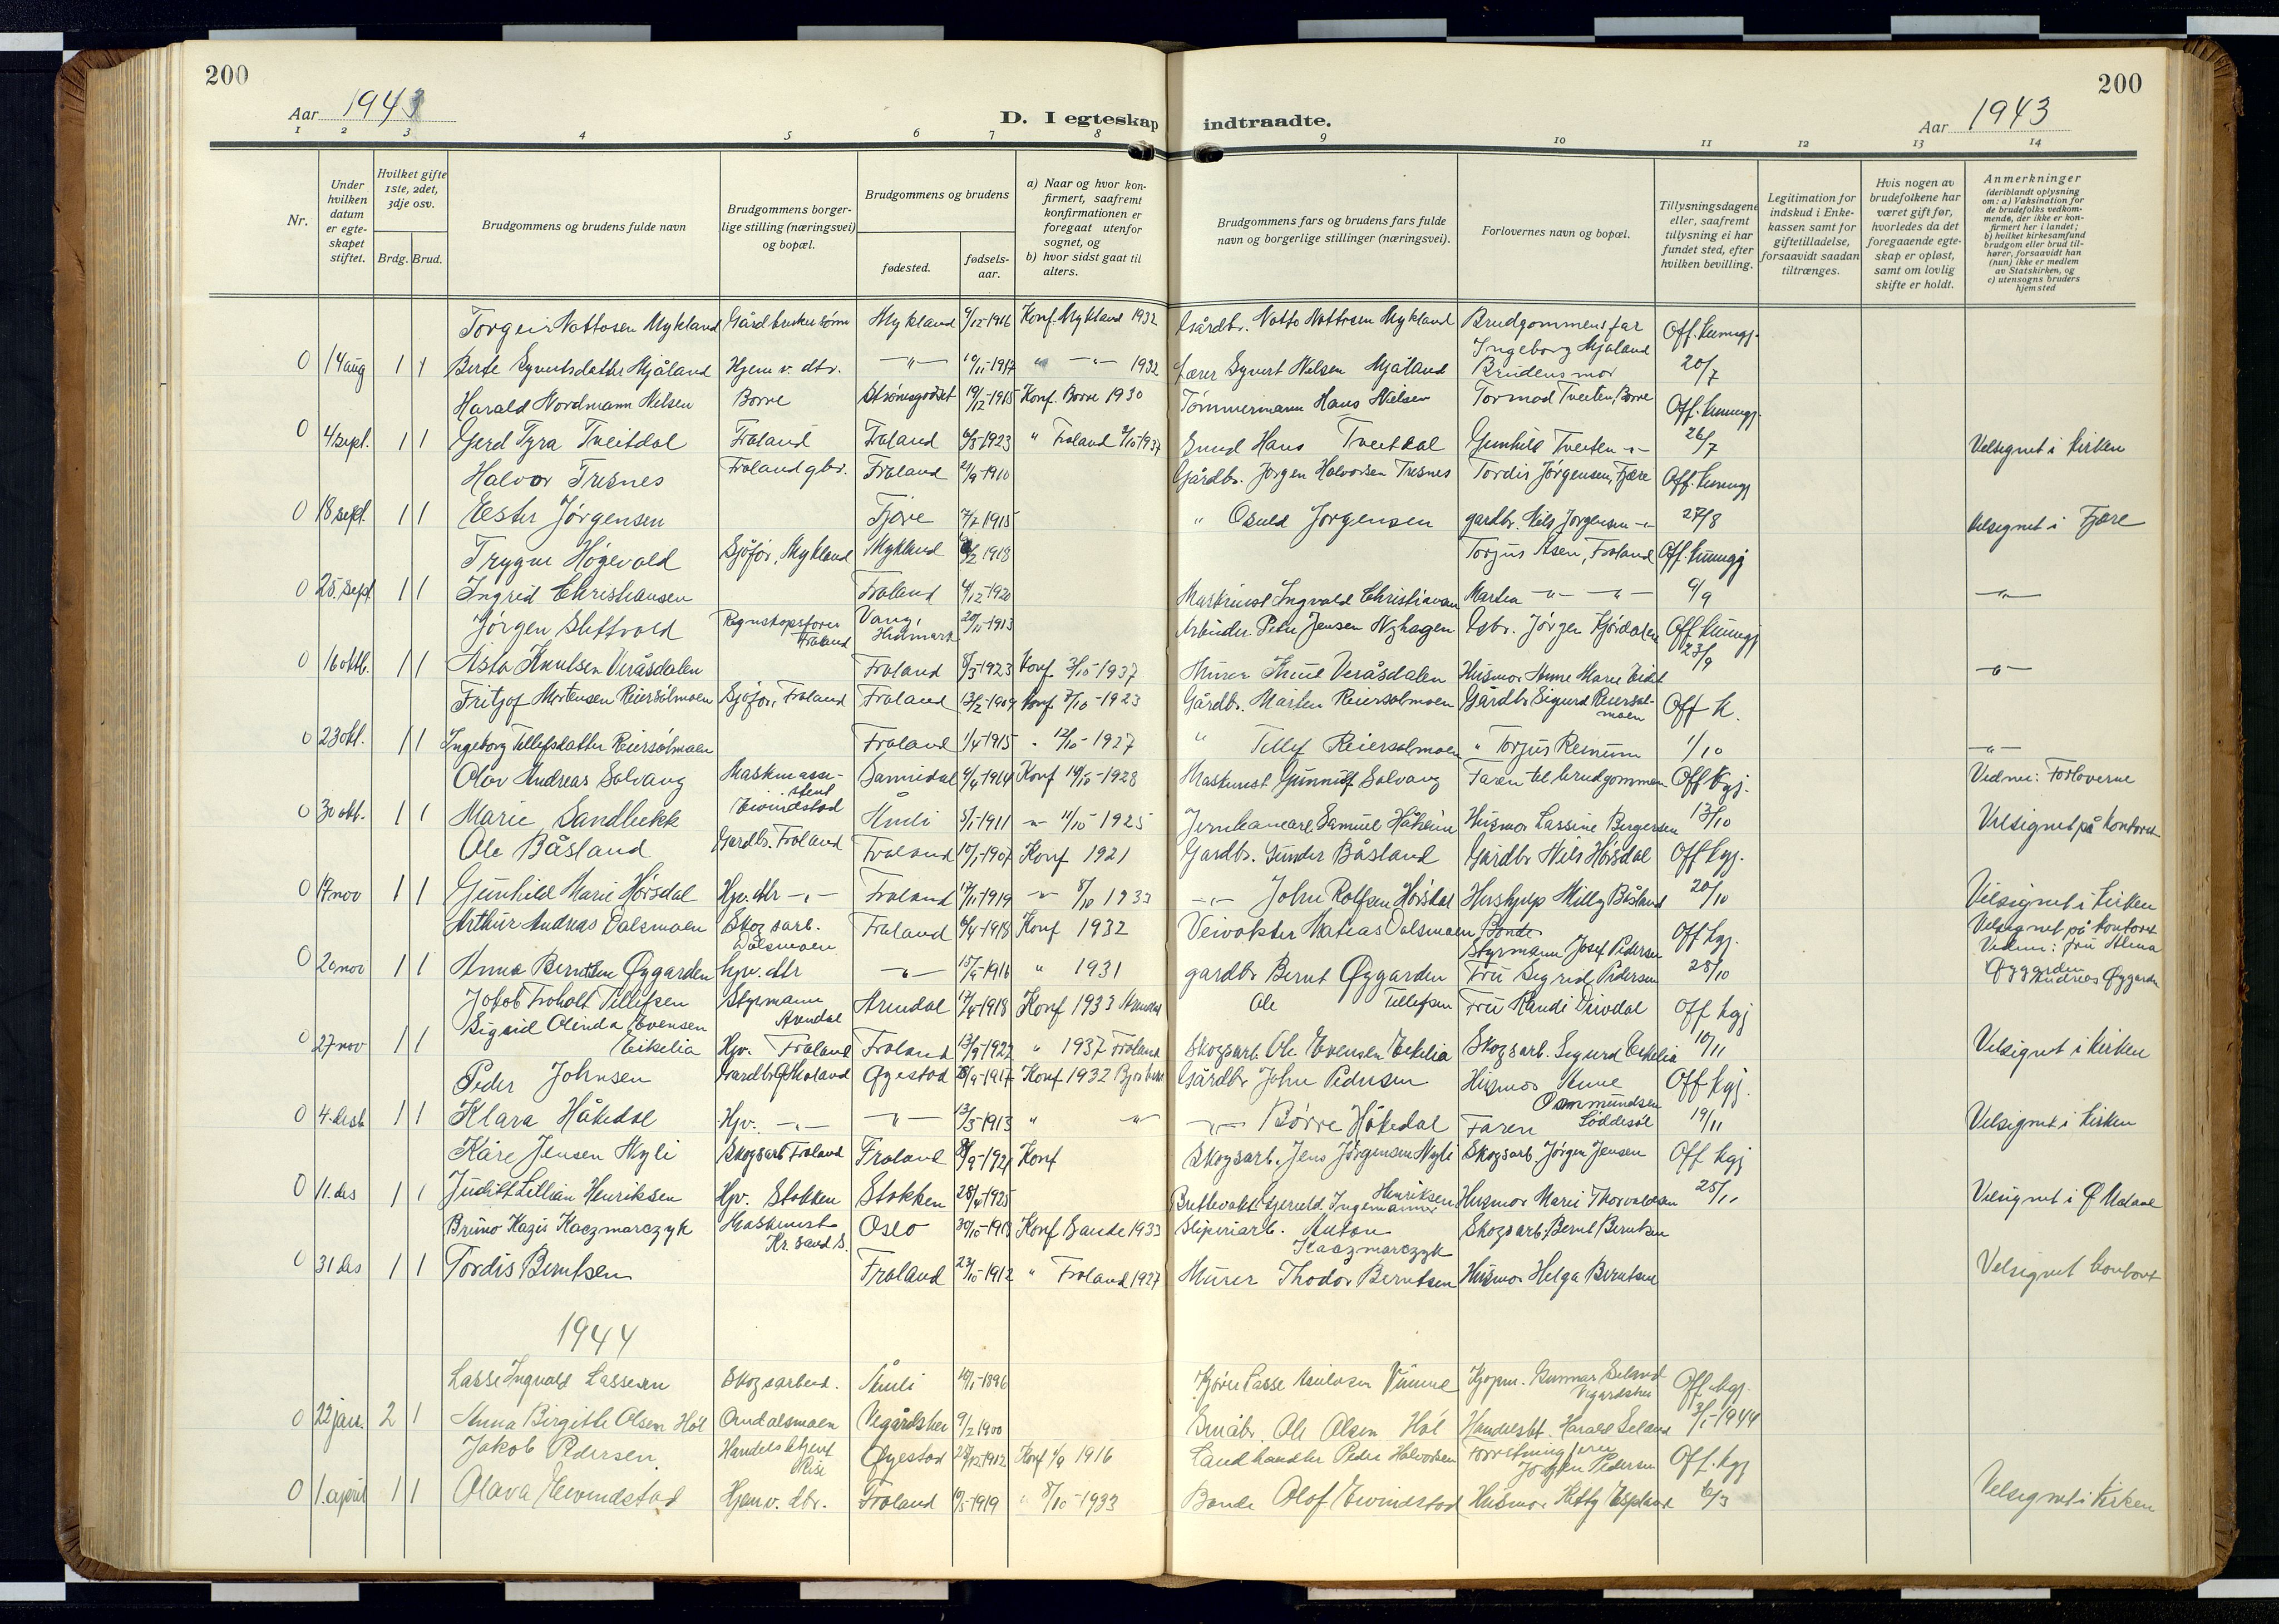 200
200
Aar 1943
D. I egteskap indtraadte.
Aar 1943
1 2 3 4 5 6 7 8 9 10 11 12 13 14
Nr.
Under hvilken datum er egteskapet stiftet.
Hvilket gifte 1ste, 2det, 3dje osv.
Brdg. Brud.
Brudgommens og brudens fulde navn
Brudgommens borgerlige stilling (næringsvei) og bopæl.
Brudgommens og brudens
fødested.
fødselsaar.
a) Naar og hvor konfirmert, saafremt konfirmationen er foregaat utenfor sognet, og
b) hvor sidst gaat til alters.
Brudgommens fars og brudens fars fulde navn og borgerlige stillinger (næringsvei).
Forlovernes navn og bopæl.
Tillysningsdagene eller, saafremt tillysning ei har fundet sted, efter hvilken bevilling.
Legitimation for indskud i Enkekassen samt for giftetilladelse, forsaavidt saadan tiltrænges.
Hvis nogen av brudefolkene har været gift før, hvorledes da det foregaaende egteskap er opløst, samt om lovlig skifte er holdt.
Anmerkninger
(deriblandt oplysning om: a) Vaksination for de brudefolks vedkommende, der ikke er konfirmert her i landet; b) hvilket kirkesamfund brudgom eller brud tilhører, forsaavidt han (hun) ikke er medlem av Statskirken, og c) utensogns bruders hjemsted
Torgeir Nottosen Mykland Gårdbrukersønn Mykland 9/12-1916 Konf. Mykland 1932 Gårdbr. Notto Nottosen Mykland Brudgommens far Off. kunngj.
0 14 aug 1 1 Berte Syvertsdatter Mjåland Hjem v. dtr. -"- 10/11-1917 " -"- 1932 Lærer Syvert Nilsen Mjåland Ingeborg Mjåland Brudens mor 20/7
Harald Nordmann Nilsen Borre Strømsgodset 19/12-1915 Konf. Borre 1930 Tømmermann Hans Nielsen Tormod Tveiten, Borre Off. kunngj.
0 4 sept. 1 1 Gerd Tyra Tveitdal Froland Froland 6/8-1923 " Froland 3/10 1937 Smed Hans Tveitdal Gunhild Tveiten -"- 26/7 Velsignet i kirken
Halvor Tresnes Froland gbr. Froland 29/9-1910 Gårdbr. Jørgen Halvorsen Tresnes Tordis Jørgensen, Fjære Off. kunngj
0 18 sept. 1 1 Ester Jørgensen Fjære 7/2 1915 " Osuld Jørgensen gardbr. Nils Jørgensen -"- 27/8 Velsignet i Fjære
Trygve Høgevold Sjåfør, Mykland Mykland 6/2 1918 Torjus Åsen, Froland Off. kunngj
0 25. sept 1 1 Ingrid Christiansen Froland 4/12-1920 Maskinist Ingvald Christiansen Martea -"- -"- 9/9 -"-
Jørgen Slettvold Regnskapsfører Froland Vang, Hedmark 20/11-1913 Arbeider Peter Jensen Nyhagen Gbr. Jørgen Fjordalen Off kunngj
0 16 okb. 1 1 Asta Knutsen Veråsdalen Froland 8/3 1923 Konf. 3/10-1937 Murer Knut Veråsdalen Husmor Anne Marie Eidet 23/9 -"-
Fritjof Mortensen Reiersølmoen Sjåfør, Froland Froland 13/2-1909 Konf 7/10-1923 Gårdbr. Morten Reiersølmoen Gårdbr. Sigurd Reiersølmoen Off k.
0 23 okt. 1 1 Ingeborg Tellefsdatter Reiersølmoen Froland 1/4 1915 " 12/10-1927 " Tellef Reiersølmoen " Torjus Reinum 1/10 -"-
Olav Andreas Solvang Maskinassistent Sannidal 4/4 1914 Konf 14/10-1928 Maskinist Gunnulf Solvang Faren til brudgommen Off kgj. Vidner: Forloverne
0 30 okt. 1 1 Marie Sandbekk Eivindstad Åmli 5/1-1911 -"- 11/10-1925 Samuel Husmor Lassine Bergersen 13/10 Velsignet på kontoret
Ole Båsland Gardbr. Froland Froland 10/1-1907 Konf 1921 Gardbr. Gunder Båsland Gårdbr Nils Hørsdal Off kgj.
0 17 nov 1 1 Gunhild Marie Hørsdal Hjv. dtr -"- Froland 17/11-1919 -"- 8/10 1933 -"- John Rolfsen Hørsdal Milly Båsland 20/10 Velsignet i kirken
Arthur Andreas Dalsmoen Skogsarb. Dalsmoen Froland 6/4-1918 Konf 1932 Veivokter Matias Dalsmoen Bonde Styrmann Josef Pedersen Off kgj. Velsignet på kontoret Vidner: Fru Alma
0 20 nov 1 1 Anna Berntsen Øygarden hjv. dtr -"- 15/9-1916 " 1931 gardbr Bernt Øygarden Fru Sigrid Pedersen 28/10 Øygarden Andreas Øygarden
Jakob Froholt Tellefsen Styrmann Arendal Arendal 17/4-1918 Konf 1933 Arendal Ole Tellefsen Fru Randi Drivdal Off kgj
0 27 nov 1 1 Sigrid Olinda Evensen Eikelia Hjv. Froland Froland 13/9-1922 " 1937 Froland Skogsarb. Ole Evensen Eikelia Skogsarb. Sigurd Eikelia 10/11 Velsignet i kirken
Peder Johnsen Gardbr Ø Moland Øyestad 8/9-1917 Konf 1932 Gårdbr John Pedersen Husmor Anne Osmundsen Off kgj.
0 4. desb 1 1 Klara Håkedal Hjv. -"- -"- 13/3-1913 " -"- -"- Børre Håkedal Faren Løddesøl 19/11 Velsignet i kirken
Kåre Jensen Nyli Skogsarb Froland Froland 8/9-1921 Konf Skogsarb. Jens Jørgensen Nyli Skogsarb. Jørgen Jensen Off kgj
0 11. des 1 1 Judith Lillian Henriksen Hjv. Stokken Stokken 28/4-1925 Gjeruld Ingemann Henriksen Husmor Marie Thorvaldsen 25/11 Velsignet i Ø Moland
Bruno Kazis Kaczmarczyk Maskinist Kr. sand S. Oslo 30/10-1918 Konf Sande 1933 Sliperiarb. Anton Kaczmarczyk Skogsarb. Bernt Berntsen
0 31 des 1 1 Tordis Berntsen Froland 23/10-1912 " Froland 1927 Murer Thodor Berntsen Husmor Helga Berntsen Velsignet kontoret
1944
Lasse Ingvald Lassesen Skogsarbeid. Åmli 10/1-1896 Lasse Vimme Kjøpm. Gunnar Seland Vegårdshei Off. kgj.
0 22 jan. 2 1 Anna Birgitte Olsen Høl Omdalsmoen Vegårdshei 9/2 1900 Småbr. Ole Olsen Høl Handelsbt. Harald Seland 3/1-1944
Jakob Pedersen Handelsbetjent Rise Øyestad 28/12 1912 Konf 1/9 1916 Landhandler Peder Halvorsen Forretningsfører Jørgen Pedersen Off. kgj
0 1. april 1 1 Olava Eivindstad Hjemv. dtr. Froland 10/5-1919 " 8/10-1933 Bonde Olof Eivindstad Husmor Kitty Espeland 6/3 Velsignet i kirken